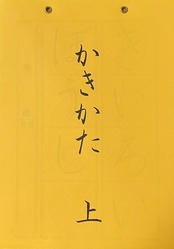 かきかた 上